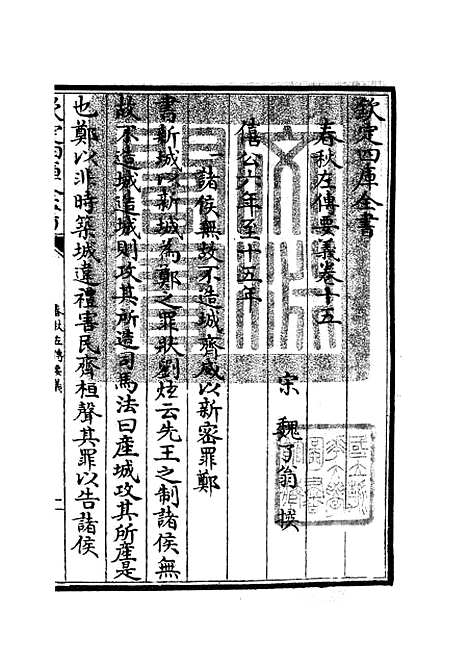 欽定四庫全書
春秋左傳要義卷十五
宋 魏了翁 撰
僖公六年至十五年
一諸侯無故不造城齊威以新密罪鄭
書新城以新城為鄭之罪狀劉炫云先王之制諸侯無
故不造城造城則攻其所造司馬法曰産城攻其所産是
也鄭以非時築城違禮害民齊桓聲其罪以告諸侯
欽定四庫全書
春秋左傳要義
一